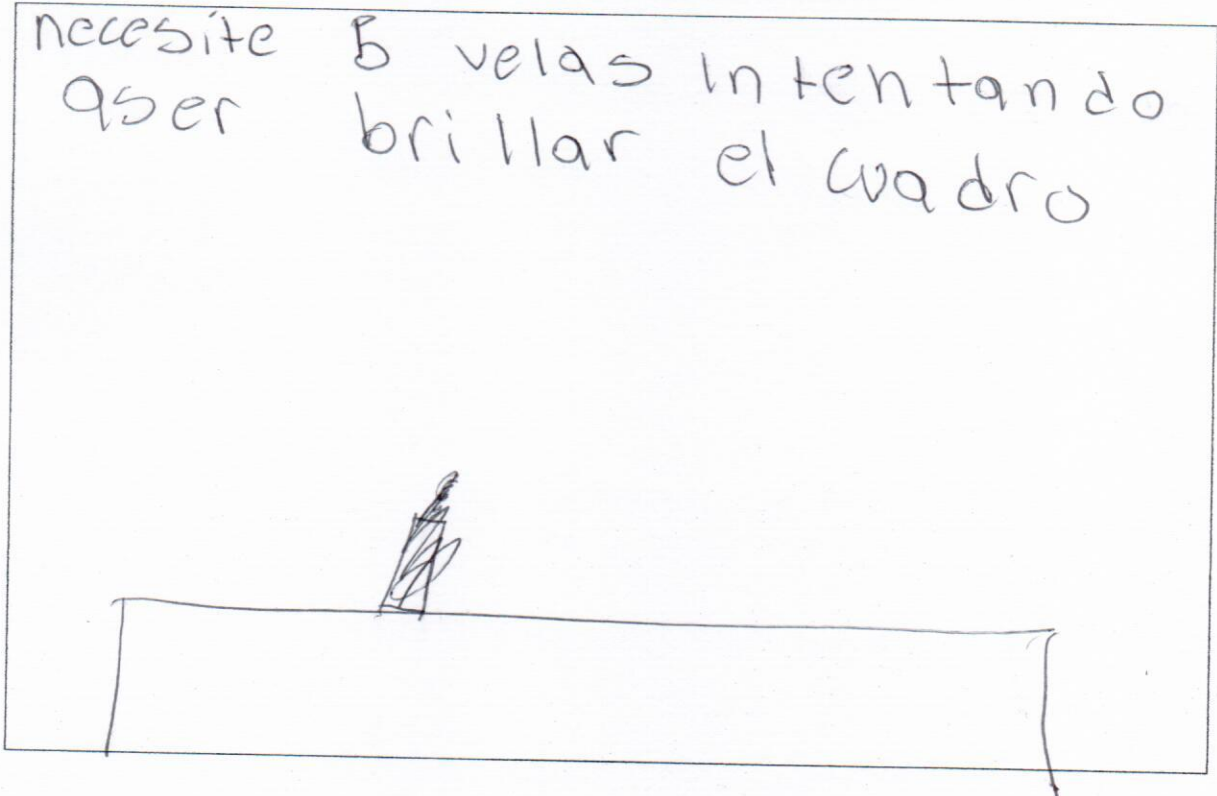 necesite 5 velas intentando
aser brillar el cuadro